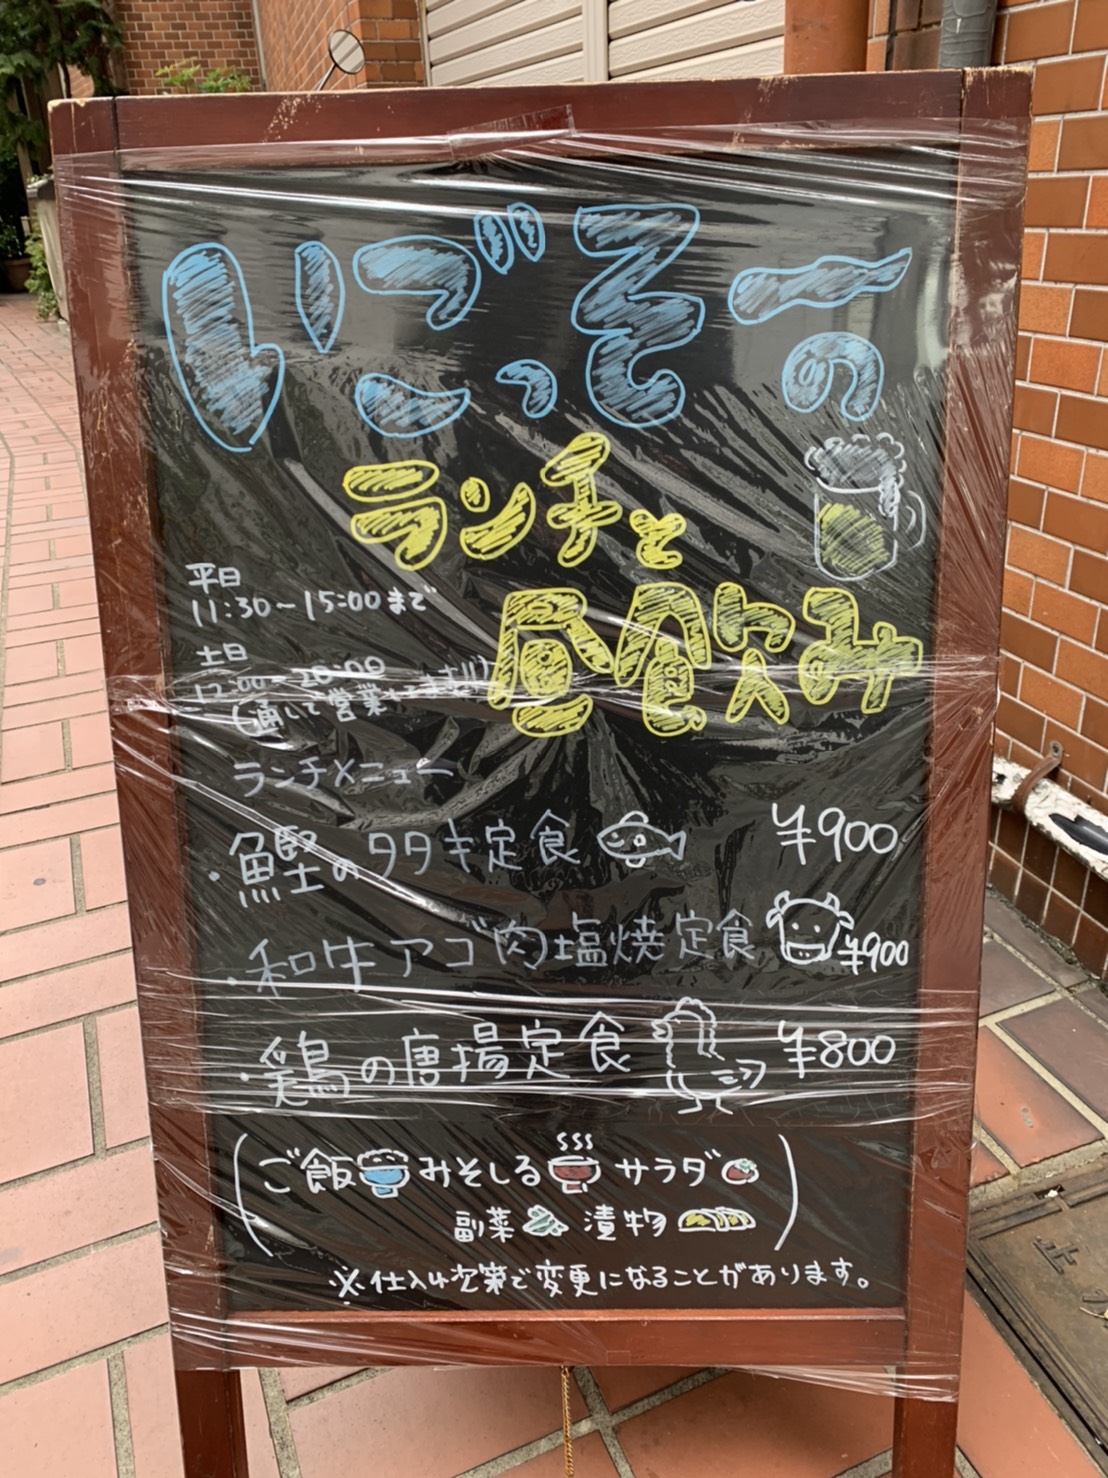 いごっそーの
ランチと
昼飲み
平日
11:30~15:00まで
土日
12:00~20:00
(通して営業
ランチメニュー
・鰹のタタキ定食 ¥900
・和牛アゴ肉塩焼定食 ¥900
・鶏の唐揚定食 ¥800
(ご飯 みそしる サラダ
副菜 漬物)
※仕入れ次第で変更になることがあります。